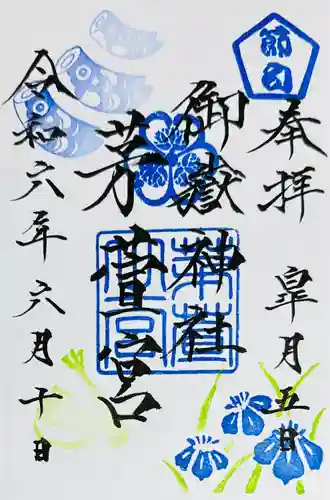 節句
奉拝
皐月五日
御嶽神社
茅萱宮
令和六年六月十日